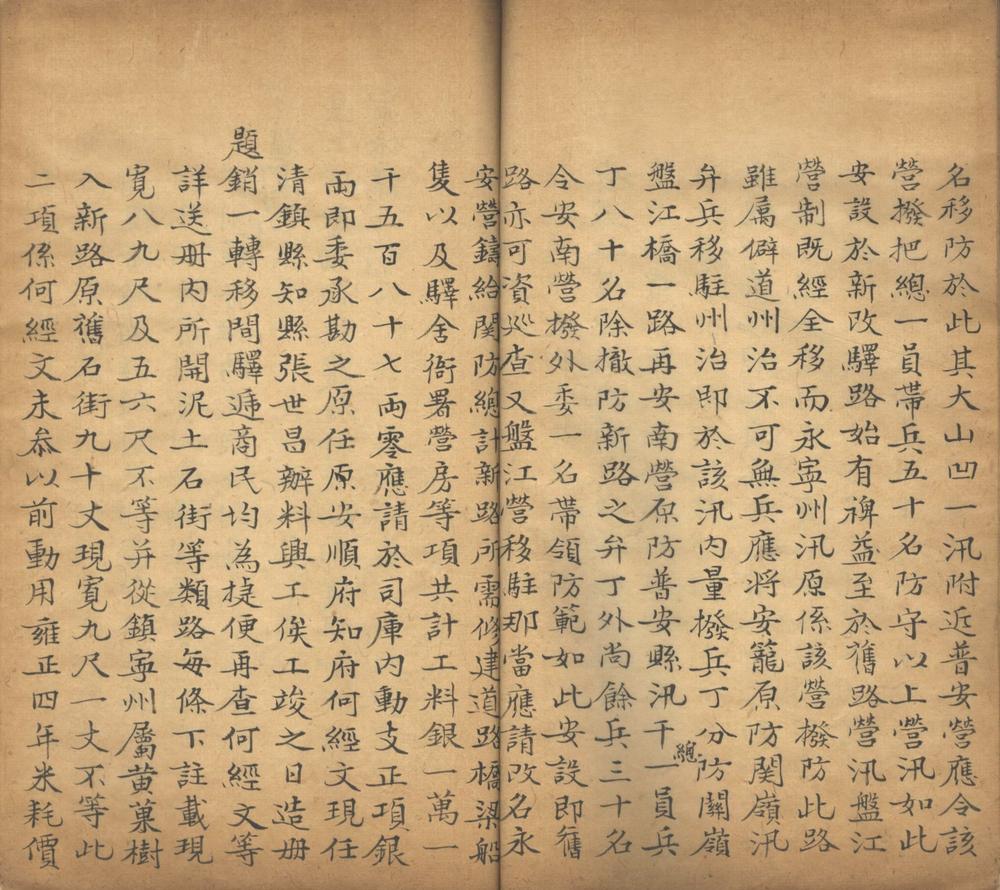 名移防於此其大山凹一汛附近普安營應令該
營撥把總一員帶兵五十名防守以上營汛如此
安設於新改驛路始有裨益至於舊路營汛盤江
營制既經全移而永寧州汛原係該營撥防此路
雖属僻道州治不可無兵應將安籠原防関嶺汛
弁兵移駐州治即於該汛內量撥兵丁分防關嶺
盤江橋一路再安南營原防普安縣汛千總一員兵
丁八十名除撤防新路之弁丁外尚餘兵三十名
令安南營撥外委一名帶領防範如此安設即舊
路亦可資廵查又盤江營移駐那當應請改名永
安營鑄給関防總計新路所需修建道路橋梁船
隻以及驛舍衙署營房等項共計工料銀一萬一
千五百八十七兩零應請於司庫內動支正項銀
兩即委承勘之原任原安順府知府何經文現任
清鎮縣知縣張世昌辦料興工俟工竣之日造册
題銷一轉移間驛逓商民均為㨗便再查何經文等
詳送册內所開泥土石街等類路每條下註載現
寬八九尺及五六尺不等并從鎮寧州屬黃菓樹
入新路原舊石街九十丈現寬九尺一丈不等此
二項係何經文未叅以前動用雍正四年米耗價